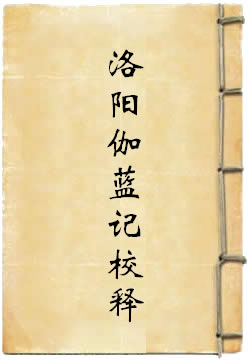 洛阳伽蓝记校释